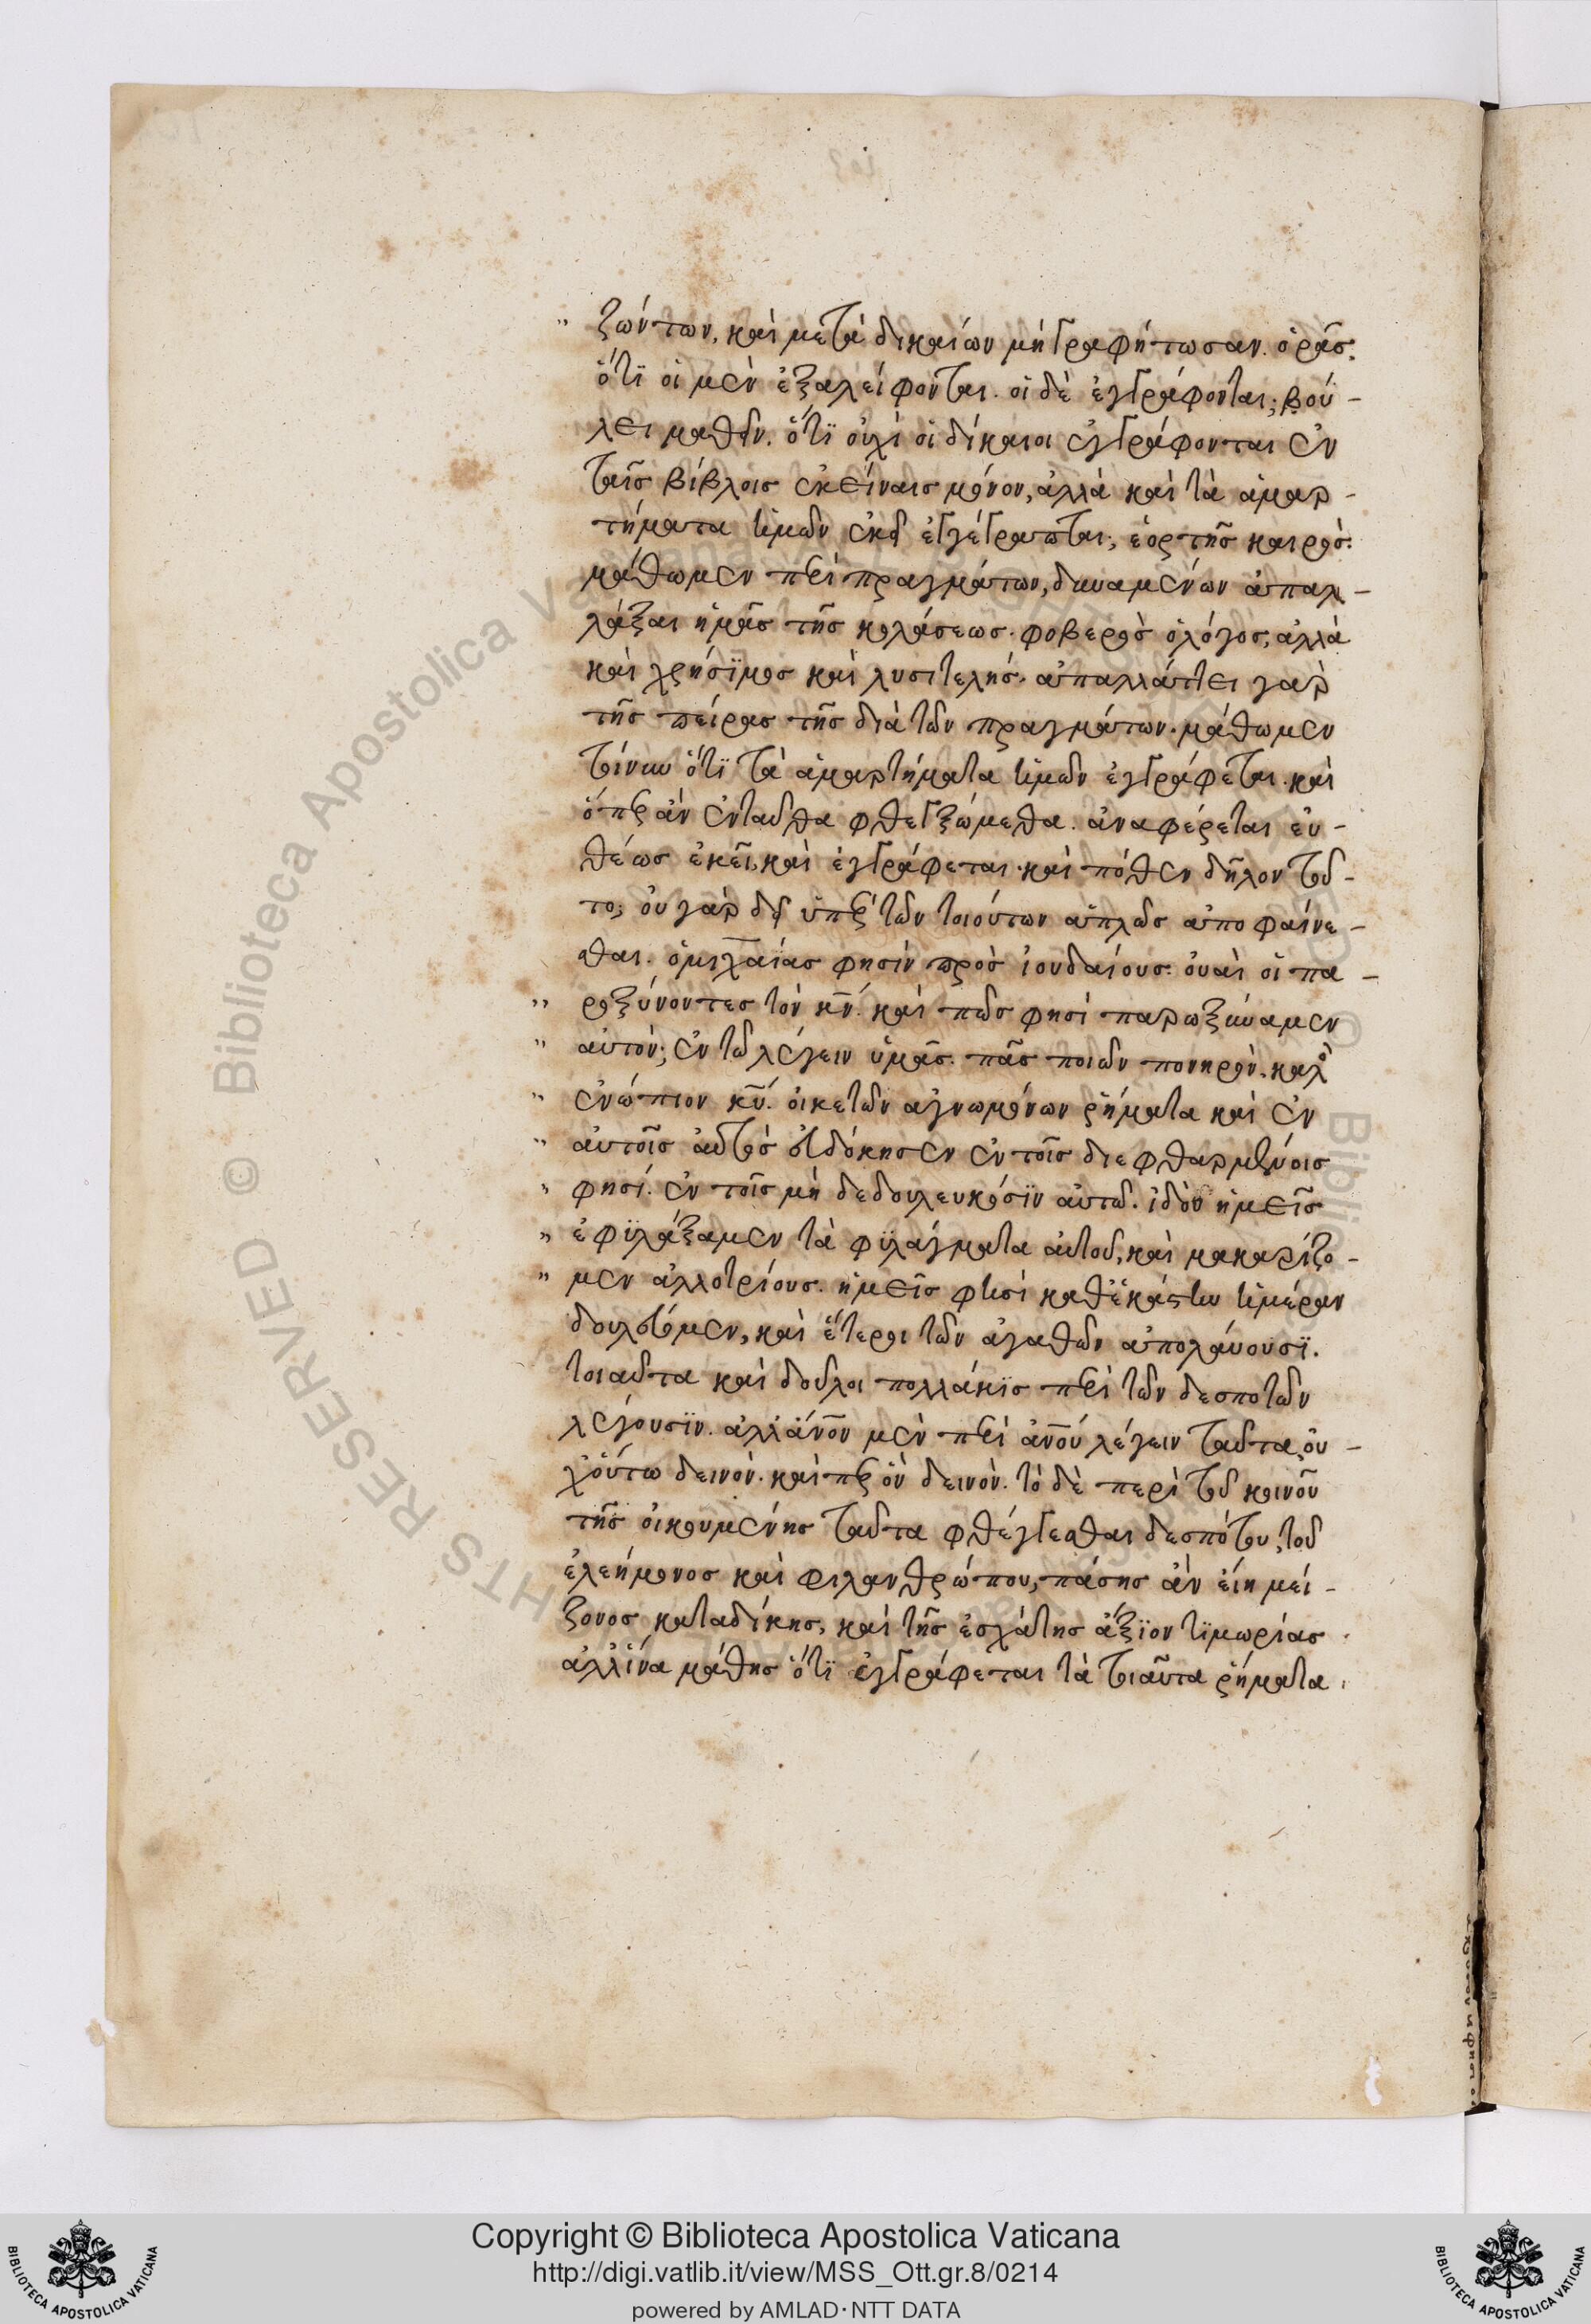 " ζώντων, καὶ μετὰ δικαίων μὴ γραφήτωσαν. ὁρᾶς
ὅτϊ οἱ μὲν ἐξαλείφονται. οἱ δὲ ἐγγράφονται; βού-
λει μαθεῖν. ὅτϊ οὐχὶ οἱ δίκαιοι ἐγγράφονται ἐν
ταῖς βίβλοις ἐκείναις μόνον, ἀλλὰ καὶ τὰ ἁμαρ-
τήματα ἡμῶν ἐκεῖ ἐγγέγραπται; ἑορτῆς καιρός.
μάθωμεν περὶ πραγμάτων, δυναμένων ἀπαλ-
λάξαι ἡμᾶς τῆς κολάσεως. φοβερὸς ὁ λόγος, ἀλλὰ
καὶ χρήσϊμος καὶ λυσιτελής. ἀπαλλάττει γὰρ
τῆς πείρας τῆς διὰ τῶν πραγμάτων. μάθωμεν
τοίνυν ὅτϊ τὰ ἁμαρτήματα ἡμῶν ἐγγράφεται. καὶ
ὅπερ ἂν ἐνταῦθα φθεγξώμεθα. ἀναφέρεται εὐ-
θέως ἐκεῖ, καὶ ἐγγράφεται. καὶ πόθεν δῆλον τοῦ-
το; οὐ γὰρ δεῖ ὑπὲρ τῶν τοιούτων ἁπλῶς ἀποφαίνε-
σθαι. ὁ μιχαίας φησὶν πρὸς ἰουδαίους. οὐαὶ οἱ πα-
" ροξύνοντες τὸν κν. καὶ πῶς φησὶ παρωξύναμεν
" αὐτόν; ἐν τῷ λέγειν ὑμᾶς. πᾶς ποιῶν πονηρὸν. καλὸν
" ἐνώπιον κυ. οἰκετῶν ἀγνωμόνων ῥήματα καὶ ἐν
" αὐτοῖς αὐτὸς εὐδόκησεν ἐν τοῖς διεφθαρμένοις
" φησί. ἐν τοῖς μὴ δεδουλευκόσϊν αὐτῷ. ἰδοὺ ἡμεῖς
" ἐφϋλάξαμεν τὰ φϋλάγματα αὐτοῦ, καὶ μακαρίζο-
" μεν ἀλλοτρίους. ἡμεῖς φησὶ καθ' ἑκάστην ἡμέραν
δουλεύομεν, καὶ ἕτεροι τῶν ἀγαθῶν ἀπολαύουσϊ.
τοιαῦτα καὶ δοῦλοι πολλάκϊς περὶ τῶν δεσποτῶν
λέγουσϊν. ἀλλ' ἄνον μὲν περὶ ἀνου λέγειν ταῦτα, οὐ-
χ' οὕτω δεινὸν. καίπερ ὂν δεινὸν. τὸ δὲ περὶ τοῦ κοινοῦ
τῆς οἰκουμένης ταῦτα φθέγγεσθαι δεσπότου, τοῦ
ἐλεήμονος καὶ φιλανθρώπου, πάσης ἂν εἴη μεί-
ζονος καταδίκης, καὶ τῆς ἐσχάτης ἄξϊον τϊμωρίας.
ἀλλ' ἵνα μάθης ὅτϊ ἐγγράφεται τὰ τοιαῦτα ῥήματα.
Copyright © Biblioteca Apostolica Vaticana
http://digi.vatlib.it/view/MSS_Ott.gr.8/0214
powered by AMLAD·NTT DATA